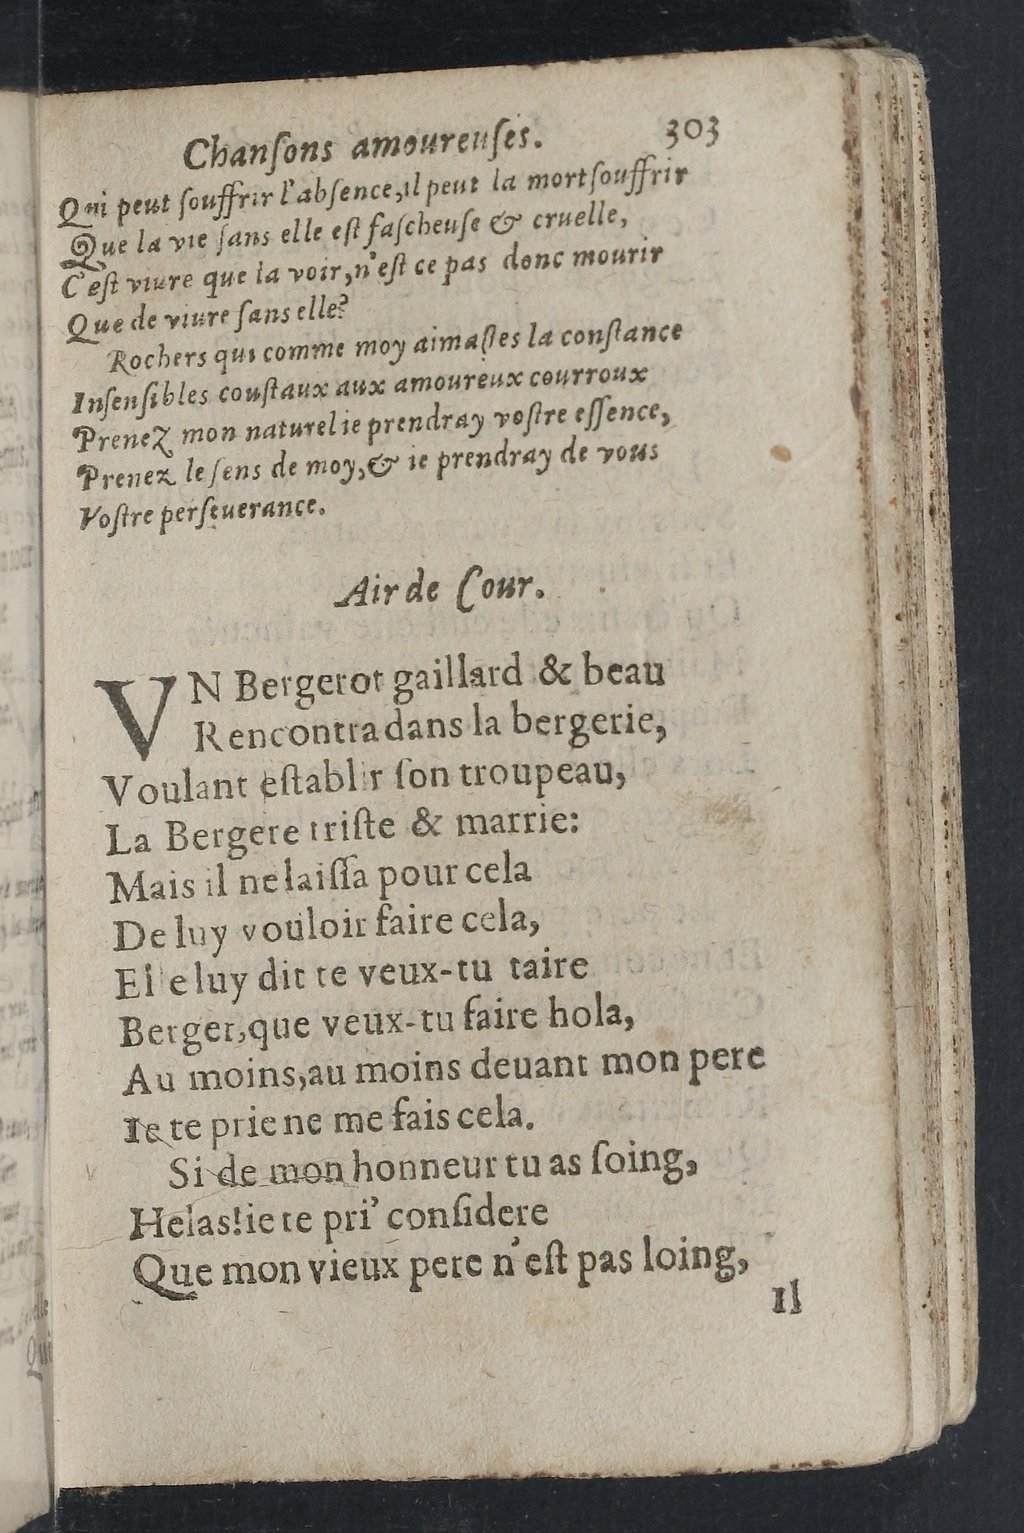 Chanſons amoureuſes. 303
Qui peut ſouffrir l'abſence, il peut la mort ſouffrir
Que la vie ſans elle eſt faſcheuſe & cruelle,
C'eſt viure que la voir, n'eſt ce pas donc mourir
Que de viure ſans elle?
Rochers qui comme moy aimaſtes la conſtance
Inſenſibles couſtaux aux amoureux courroux
Prenez mon naturel ie prendray voſtre eſſence,
Prenez le ſens de moy, & ie prendray de vous
Voſtre perſeuerance.
Air de Cour.
VN Bergerot gaillard & beau
Rencontra dans la bergerie,
Voulant eſtablir ſon troupeau,
La Bergere triſte & marrie:
Mais il ne laiſſa pour cela
De luy vouloir faire cela,
Elle luy dit te veux-tu taire
Berger, que veux-tu faire hola,
Au moins, au moins deuant mon pere
Ie te prie ne me fais cela.
Si de mon honneur tu as ſoing,
Helas! ie te pri' conſidere
Que mon vieux pere n'eſt pas loing,
Il